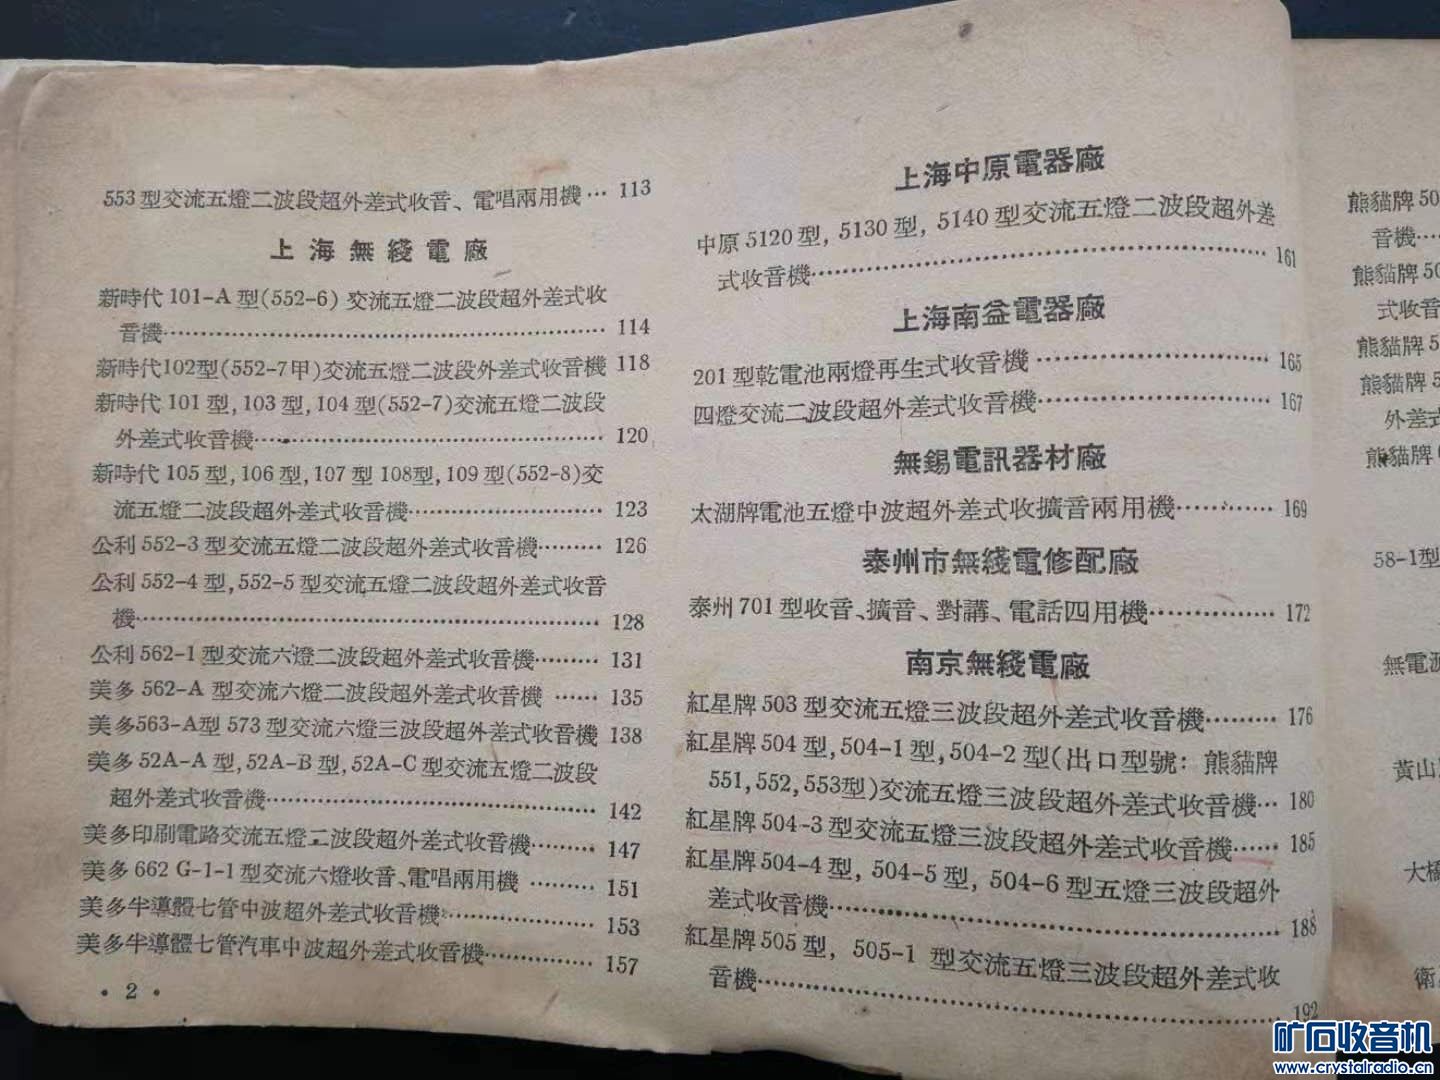 553型交流五燈二波段超外差式收音、電唱兩用機… 113
上海無綫電廠
新時代101-A型(552-6)交流五燈二波段超外差式收
音機………… 114
新時代102型(552-7甲)交流五燈二波段外差式收音機 118
新時代101型,103型,104型(552-7)交流五燈二波段
外差式收音機………… 120
新時代105型,106型,107型108型,109型(552-8)交
流五燈二波段超外差式收音機………… 123
公利552-3型交流五燈二波段超外差式收音機……… 126
公利552-4型,552-5型交流五燈二波段超外差式收音
機………… 128
公利562-1型交流六燈二波段超外差式收音機……… 131
美多562-A型交流六燈二波段超外差式收音機 …… 135
美多563-A型573型交流六燈三波段超外差式收音機 138
美多52A-A型,52A-B型,52A-C型交流五燈二波段
超外差式收音機………… 142
美多印刷電路交流五燈二波段超外差式收音機……… 147
美多662 G-1-1型交流六燈收音、電唱兩用機 ……… 151
美多半導體七管中波超外差式收音機………… 153
美多半導體七管汽車中波超外差式收音機………… 157
• 2 •
上海中原電器廠
中原5120型,5130型,5140型交流五燈二波段超外差
式收音機………… 161
上海南益電器廠
201型乾電池兩燈再生式收音機………… 165
四燈交流二波段超外差式收音機………… 167
無錫電訊器材廠
太湖牌電池五燈中波超外差式收擴音兩用機………… 169
泰州市無綫電修配廠
泰州701型收音、擴音、對講、電話四用機………… 172
南京無綫電廠
紅星牌503型交流五燈三波段超外差式收音機……… 176
紅星牌504型,504-1型,504-2型(出口型號:熊貓牌
551,552,553型)交流五燈三波段超外差式收音機… 180
紅星牌504-3型交流五燈三波段超外差式收音機…… 185
紅星牌504-4型,504-5型,504-6型五燈三波段超外
差式收音機………… 188
紅星牌505型,505-1型交流五燈三波段超外差式收
音機………… 192
熊貓牌50
音機…
熊貓牌50
式收音
熊貓牌5
熊貓牌5
外差式
熊貓牌
58-1型
無電源
黃山
大橋
衛星
矿石收音机
www.crystalradio.cn